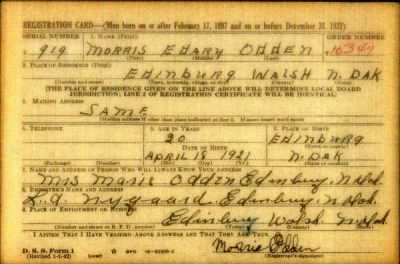 REGISTRATION CARD—(Men born on or after February 17, 1897 and on or before December 31, 1921)
SERIAL NUMBER 1. NAME (Print) ORDER NUMBER
919 MORRIS EDARY ODDEN 10347
(First) (Middle) (Last)
2. PLACE OF RESIDENCE (Print)
EDINBURG WALSH N. DAK
(THE PLACE OF RESIDENCE GIVEN ON THE LINE ABOVE WILL DETERMINE LOCAL BOARD
JURISDICTION; LINE 2 OF REGISTRATION CERTIFICATE WILL BE IDENTICAL)
3. MAILING ADDRESS
SAME
(Mailing address if other than place indicated on line 2. If same insert word same)
4. TELEPHONE 5. AGE IN YEARS 6. PLACE OF BIRTH
20 EDINBURG
DATE OF BIRTH
APRIL 18 1921 N. DAK
(Exchange) (Number) (Mo.) (Day) (Yr.) (State or country)
7. NAME AND ADDRESS OF PERSON WHO WILL ALWAYS KNOW YOUR ADDRESS
Mrs Marie Odden Edinburg, N Dak.
8. EMPLOYER'S NAME AND ADDRESS
Nygaard, Edinburg, N Dak.
9. PLACE OF EMPLOYMENT OR BUSINESS
Edinburg Walsh N. Dak
I AFFIRM THAT I HAVE VERIFIED ABOVE ANSWERS AND THAT THEY ARE TRUE.
D. S. S. Form 1 Morris Odden
(Revised 1-1-42) (Registrant's signature)